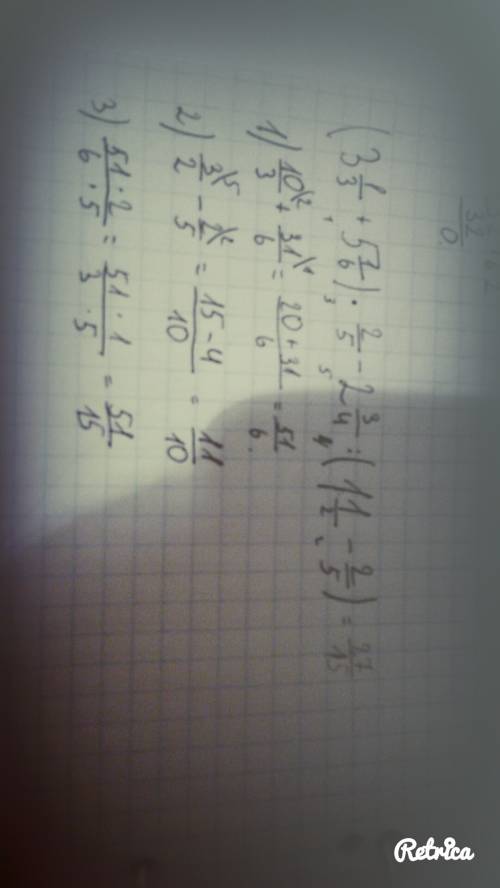 (3 1/3 + 5 1/6) · 2/5 - 2 3/4 : (1 1/2 - 2/5) = 27/15
1) 10/3 + 31/6 = 20+31/6 = 51/6.
2) 3/2 - 2/5 = 15-4/10 = 11/10
3) 51·2/6·5 = 51·1/3·5 = 51/15
Retrica